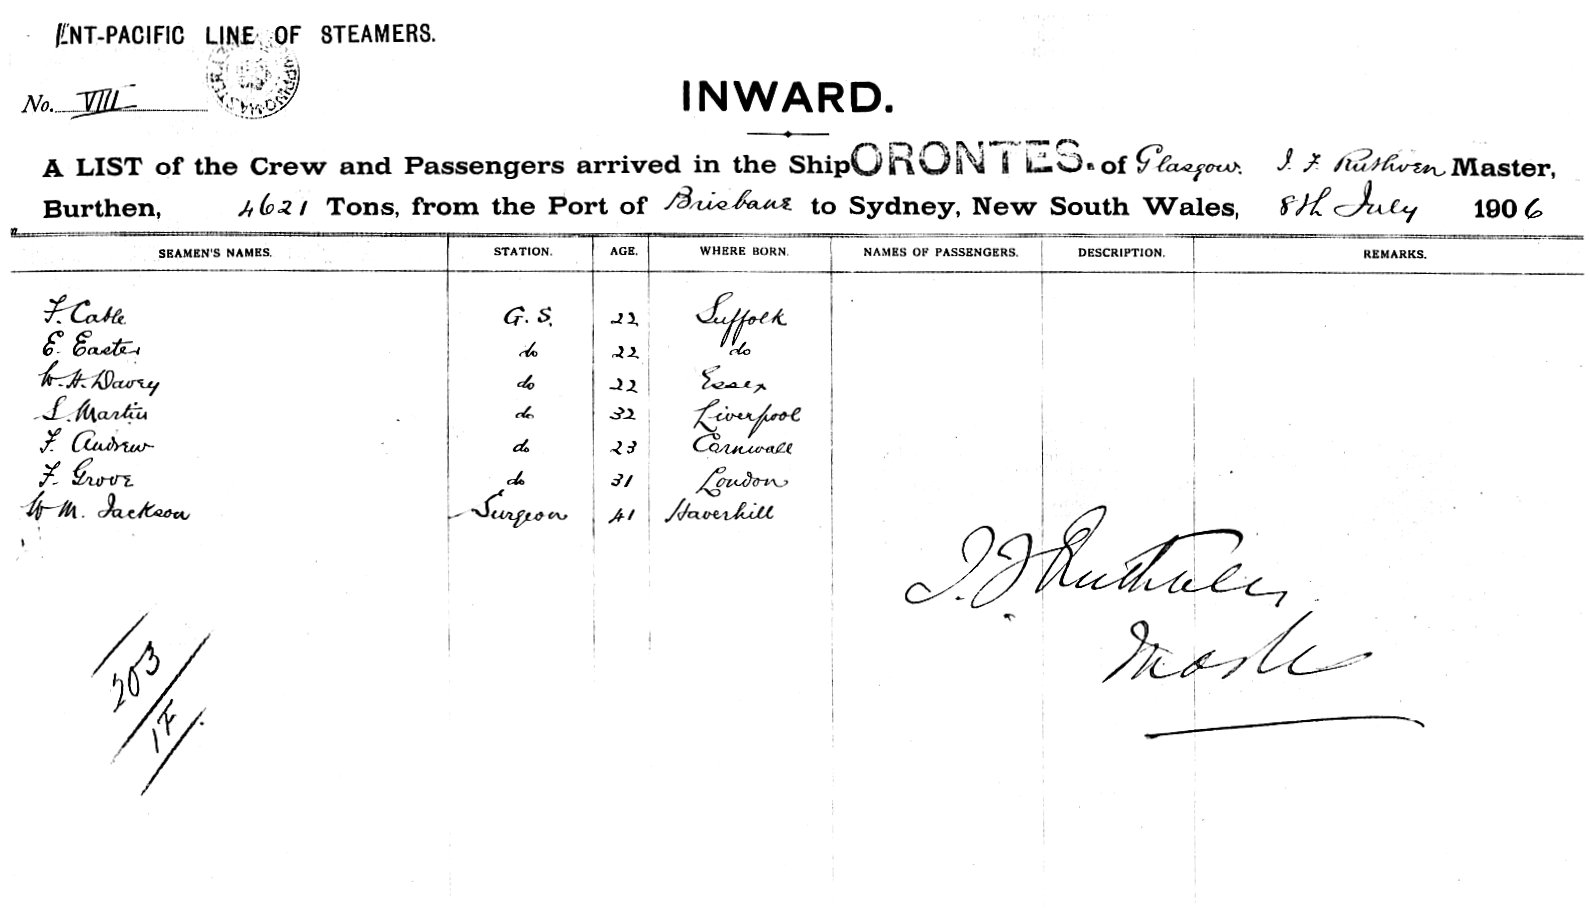 ENT-PACIFIC LINE OF STEAMERS.
No. VIII
INWARD.
A LIST of the Crew and Passengers arrived in the Ship ORONTES. of Glasgow. J. F. Ruthven Master,
Burthen, 4621 Tons, from the Port of Brisbane to Sydney, New South Wales, 8th July 1906
SEAMEN'S NAMES. STATION. AGE. WHERE BORN. NAMES OF PASSENGERS. DESCRIPTION. REMARKS.
F. Cable G. S. 22 Suffolk
E. Easter do 22 do
W. H. Davey do 22 Essex
S. Martin do 32 Liverpool
F. Andrew do 23 Cornwall
F. Grove do 31 London
W M. Jackson Surgeon 41 Haverhill
J. F. Ruthven
Master
203
1F